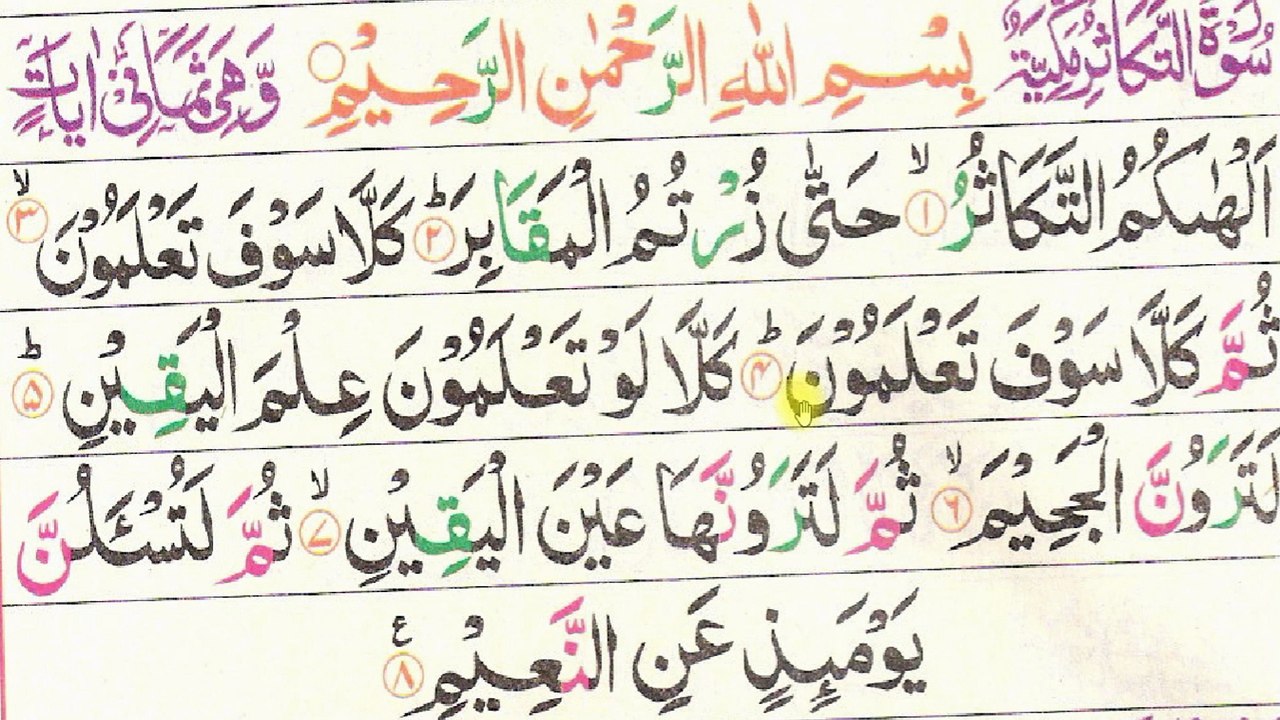 سُوْرَةُ التَّكَاثُرِ مَكِّيَّةٌ بِسْمِ اللّٰهِ الرَّحْمٰنِ الرَّحِيْمِ ○ وَّهِىَ ثَمَانِىْ اٰيَاتٍ
اَلْهٰىكُمُ التَّكَاثُرُ ۙ﴿۱﴾ حَتّٰى زُرْتُمُ الْمَقَابِرَ ؕ﴿۲﴾ كَلَّا سَوْفَ تَعْلَمُوْنَ ۙ﴿۳﴾
ثُمَّ كَلَّا سَوْفَ تَعْلَمُوْنَ ؕ﴿۴﴾ كَلَّا لَوْ تَعْلَمُوْنَ عِلْمَ الْيَقِيْنِ ؕ﴿۵﴾
لَتَرَوُنَّ الْجَحِيْمَ ۙ﴿۶﴾ ثُمَّ لَتَرَوُنَّهَا عَيْنَ الْيَقِيْنِ ۙ﴿۷﴾ ثُمَّ لَتُسْئَلُنَّ
يَوْمَئِذٍ عَنِ النَّعِيْمِ ﴿۸﴾ ع